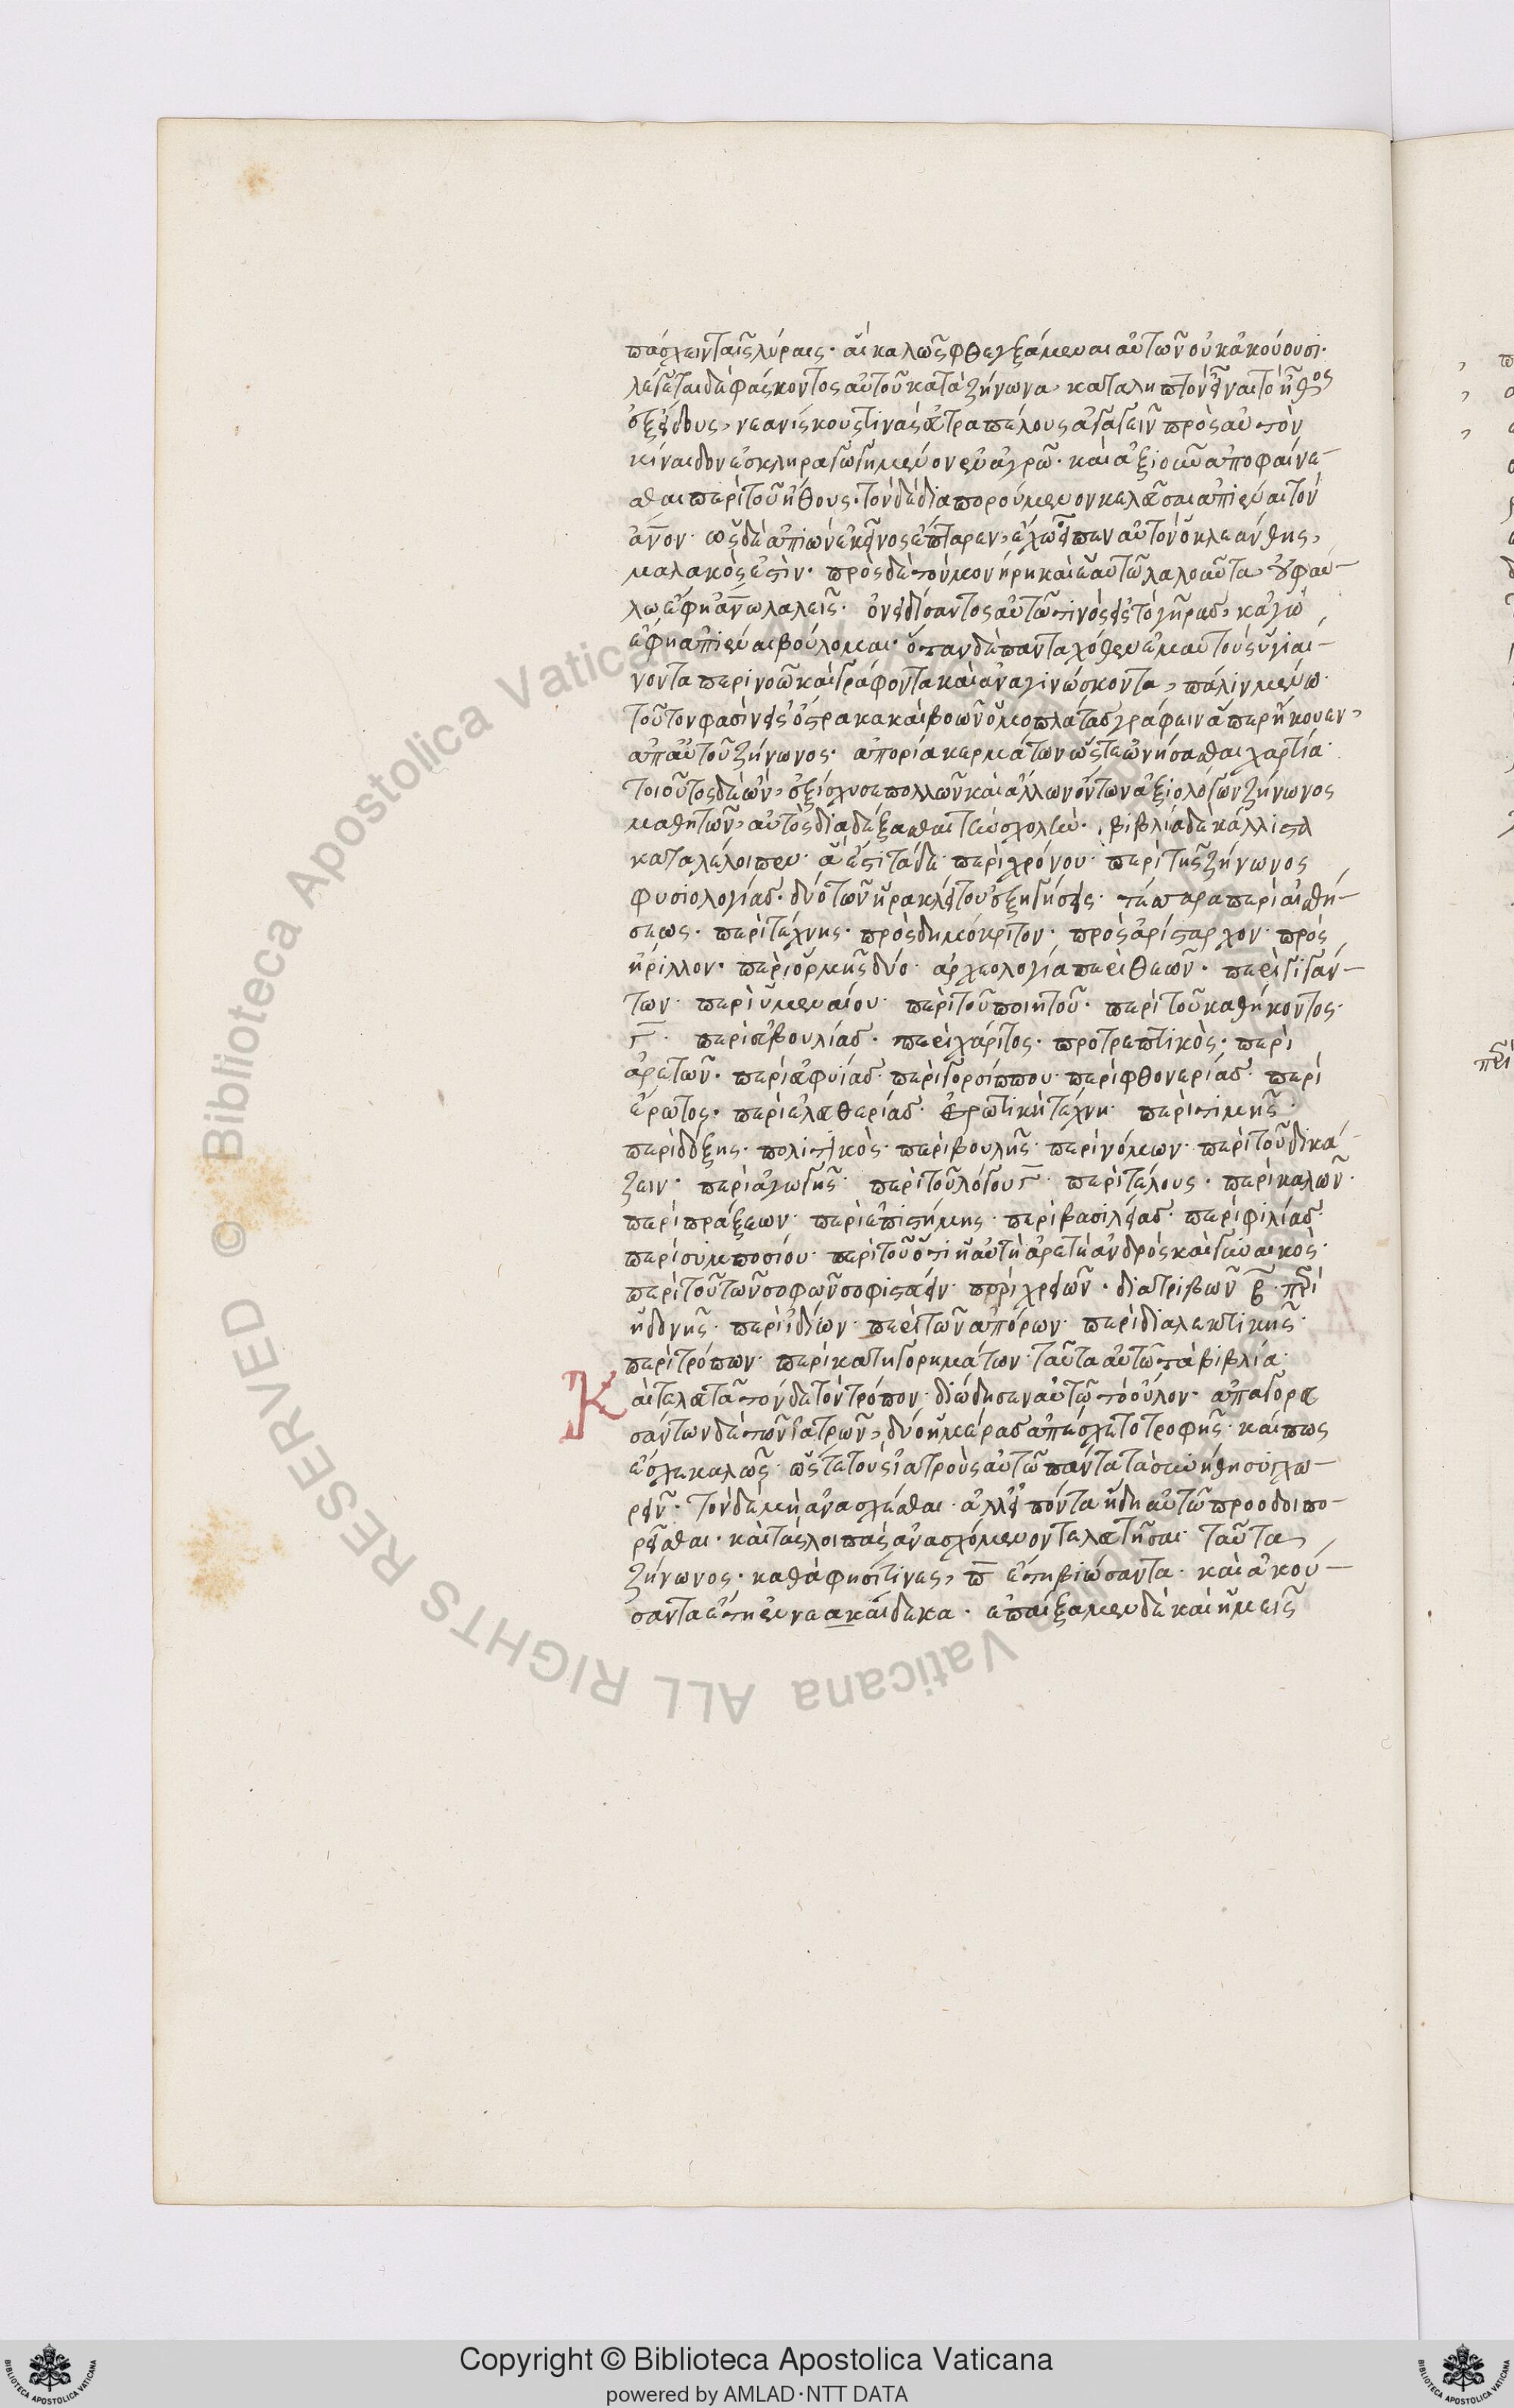 πάσχειν ταῖς λύραις· αἳ καλῶς φθεγξάμεναι αὑτῶν οὐκ ἀκούουσι·
λέγεται δὲ φάσκοντος αὐτοῦ κατὰ ζήνωνα, καταληπτὸν εἶναι τὸ ἦθος
ἐξ εἴδους, νεανίσκους τινὰς εὐτραπέλους ἀγαγεῖν πρὸς αὐτὸν
κίναιδον ἐσκληραγωγημένον ἐν ἀγρῶ· καὶ ἀξιοῦν ἀποφαίνε-
σθαι περὶ τοῦ ἤθους· τὸν δὲ διαπορούμενον κελεῦσαι ἀπιέναι τὸν
ἄν̅ον· ὡς δὲ ἀπιὼν ἐκεῖνος ἔπταρεν, ἔχω εἶπεν αὐτὸν ὁ κλεάνθης,
μαλακός ἐστιν· πρὸς δὲ τὸν μονήρη καὶ ἑαυτῶ λαλοῦντα, οὐ φαύ-
λω ἔφη ἀν̅ω λαλεῖς· ὀνειδίσαντος αὐτῶ τινὸς εἰς τὸ γῆρας, κἀγὼ
ἔφη ἀπιέναι βούλομαι· ὅταν δὲ πανταχόθεν ἐμαυτὸν ὑγιαί-
νοντα περινοῶ καὶ γράφοντα καὶ ἀναγινώσκοντα, πάλιν μένω·
τοῦτον φασὶν εἰς ὄστρακα καὶ βοῶν ὠμοπλάτας γράφειν ἅπερ ἤκουεν,
ἀπ αὐτοῦ ζήνωνος· ἀπορία κερμάτων ὥστε ὠνήσασθαι χαρτία·
τοιοῦτος δὲ ὢν, ἐξίσχυσε πολλῶν καὶ ἄλλων ὄντων ἀξιολόγων ζήνωνος
μαθητῶν, αὐτὸς διαδέξασθαι τὴν σχολήν· βιβλία δὲ κάλλιστα
καταλέλοιπεν· ἅ ἐστι τάδε· περὶ χρόνου· περὶ τῆς ζήνωνος
φυσιολογίας· δύο τῶν ἡρακλείτου ἐξηγήσεις· τέσσαρα περὶ αἰσθή-
σεως· περὶ τέχνης· πρὸς δημόκριτον· πρὸς ἀρίσταρχον· πρὸς
ἥριλλον· περὶ ὁρμῆς δύο· ἀρχαιολογία περὶ θεῶν· περὶ γιγάν-
των· περὶ ὑμεναίου· περὶ τοῦ ποιητοῦ· περὶ τοῦ καθήκοντος·
γ̅· περὶ εὐβουλίας· περὶ χάριτος· προτρεπτικὸς· περὶ
ἀρετῶν· περὶ εὐφυίας· περὶ γοργίππου· περὶ φθονερίας· περὶ
ἔρωτος· περὶ ἐλευθερίας· ἐρωτικὴ τέχνη· περὶ τιμῆς·
περὶ δόξης· πολιτικὸς· περὶ βουλῆς· περὶ νόμων· περὶ τοῦ δικά-
ζειν· περὶ ἀγωγῆς· περὶ τοῦ λόγου γ̅· περὶ τέλους· περὶ καλῶν·
περὶ πράξεων· περὶ ἐπιστήμης· περὶ βασιλείας· περὶ φιλίας·
περὶ συμποσίου· περὶ τοῦ ὅτι ἡ αὐτὴ ἀρετὴ ἀνδρὸς καὶ γυναικὸς·
περὶ τοῦ τῶν σοφῶν σοφιστεύειν· περὶ χρειῶν· διατριβῶν β̅· περὶ
ἡδονῆς· περὶ ἰδίων· περὶ τῶν ἀπόρων· περὶ διαλεκτικῆς·
περὶ τρόπων· περὶ κατηγορημάτων· ταῦτα αὐτῶ τὰ βιβλία·
Καὶ τελευτᾶ τόνδε τὸν τρόπον· διώδησεν αὐτῶ τὸ οὖλον· ἀπαγορευ
σάντων δὲ τῶν ἰατρῶν, δύο ἡμέρας ἀπέσχετο τροφῆς· καί πως
ἔσχε καλῶς· ὥστε τοὺς ἰατροὺς αὐτῶ πάντα τὰ συνήθη συγχω-
ρεῖν· τὸν δὲ μὴ ἀνασχέσθαι· ἀλλ εἰπόντα ἤδη αὐτῶ προοδοιπο-
ρεῖσθαι· καὶ τὰς λοιπὰς ἀνασχόμενον τελευτῆσαι· ταῦτα,
ζήνωνος· καθά φησί τινες, π̅ ἔτη βιώσαντα· καὶ ἀκού-
σαντα ἔτη ἐννεακαίδεκα· ἐπαίξαμεν δὲ καὶ ἡμεῖς